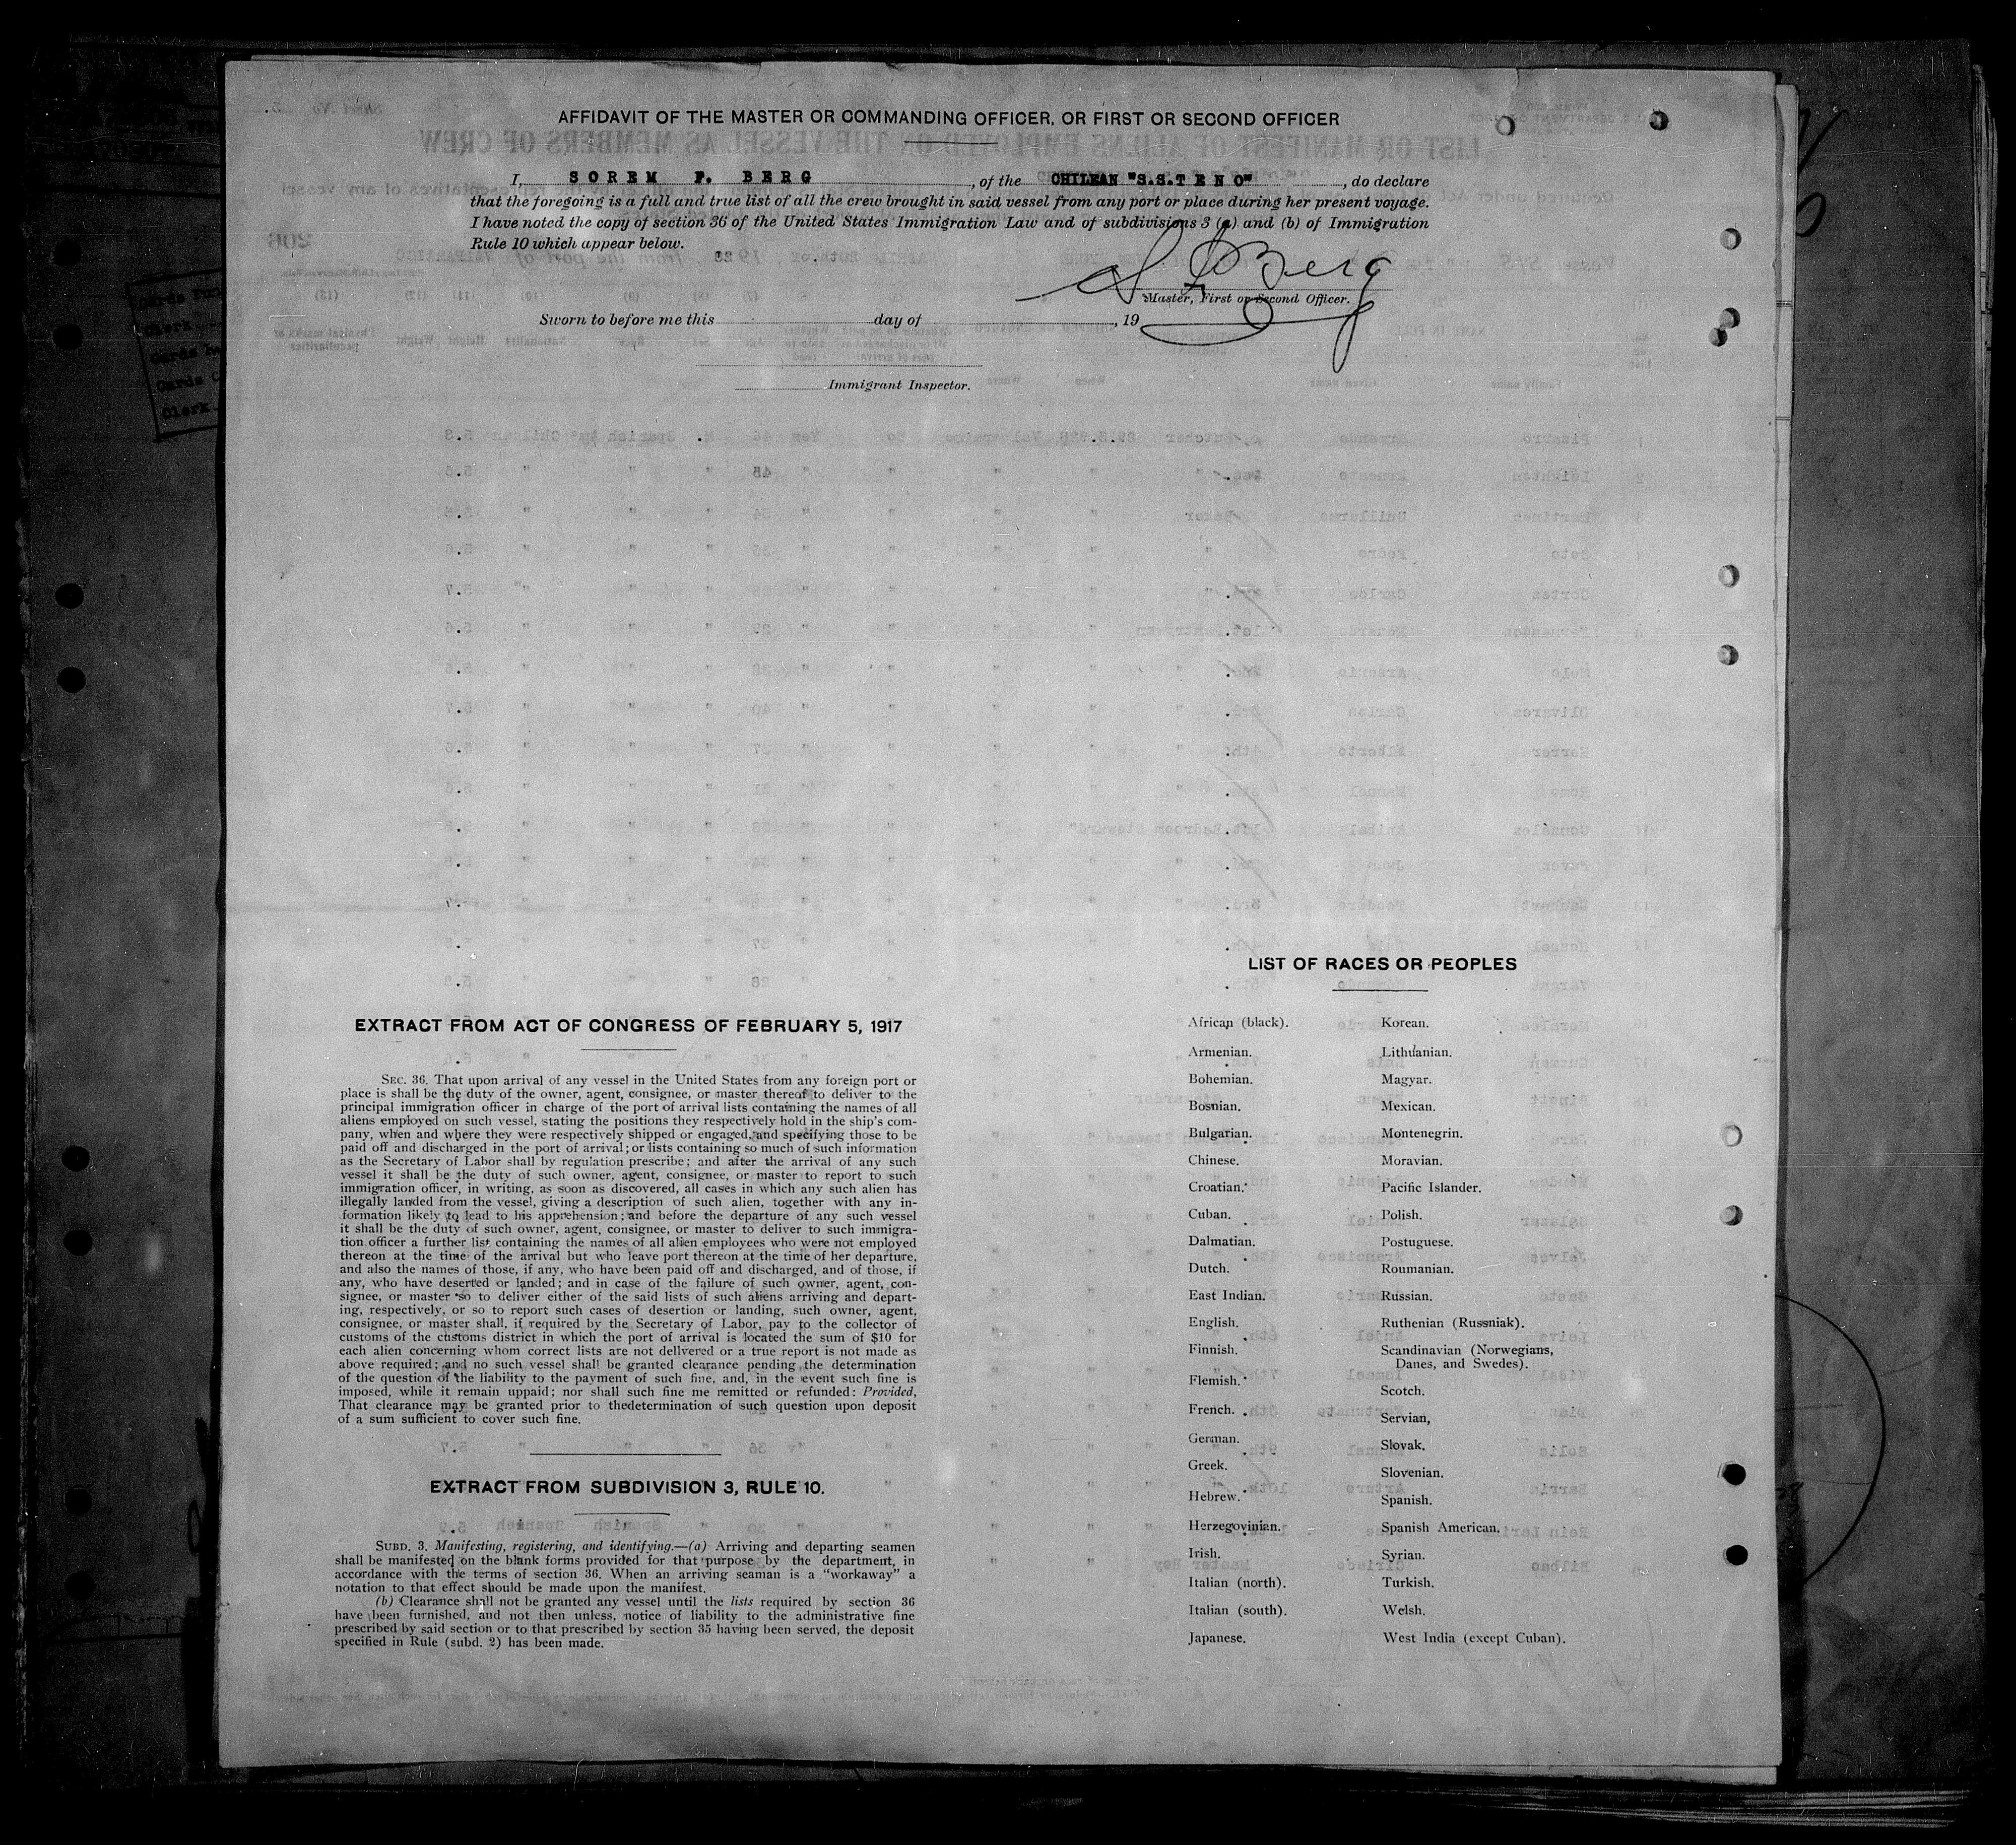 AFFIDAVIT OF THE MASTER OR COMMANDING OFFICER, OR FIRST OR SECOND OFFICER
I, SOREM F. BERG, of the CHILEAN "S.S.TENO", do declare
that the foregoing is a full and true list of all the crew brought in said vessel from any port or place during her present voyage.
I have noted the copy of section 36 of the United States Immigration Law and of subdivisions 3 (a) and (b) of Immigration
Rule 10 which appear below.
S F Berg
Master, First or Second Officer.
Sworn to before me this day of , 19
Immigrant Inspector.
EXTRACT FROM ACT OF CONGRESS OF FEBRUARY 5, 1917
SEC. 36. That upon arrival of any vessel in the United States from any foreign port or
place is shall be the duty of the owner, agent, consignee, or master thereof to deliver to the
principal immigration officer in charge of the port of arrival lists containing the names of all
aliens employed on such vessel, stating the positions they respectively hold in the ship's com-
pany, when and where they were respectively shipped or engaged, and specifying those to be
paid off and discharged in the port of arrival; or lists containing so much of such information
as the Secretary of Labor shall by regulation prescribe; and after the arrival of any such
vessel it shall be the duty of such owner, agent, consignee, or master to report to such
immigration officer, in writing, as soon as discovered, all cases in which any such alien has
illegally landed from the vessel, giving a description of such alien, together with any in-
formation likely to lead to his apprehension; and before the departure of any such vessel
it shall be the duty of such owner, agent, consignee, or master to deliver to such immigra-
tion officer a further list containing the names of all alien employees who were not employed
thereon at the time of the arrival but who leave port thereon at the time of her departure,
and also the names of those, if any, who have been paid off and discharged, and of those, if
any, who have deserted or landed; and in case of the failure of such owner, agent, con-
signee, or master so to deliver either of the said lists of such aliens arriving and depart-
ing, respectively, or so to report such cases of desertion or landing, such owner, agent,
consignee, or master shall, if required by the Secretary of Labor, pay to the collector of
customs of the customs district in which the port of arrival is located the sum of $10 for
each alien concerning whom correct lists are not dellvered or a true report is not made as
above required; and no such vessel shall be granted clearance pending the determination
of the question of the liability to the payment of such fine, and, in the event such fine is
imposed, while it remain uppaid; nor shall such fine me remitted or refunded: Provided,
That clearance may be granted prior to thedetermination of such question upon deposit
of a sum sufficient to cover such fine.
EXTRACT FROM SUBDIVISION 3, RULE 10.
SUBD. 3. Manifesting, registering, and identifying.—(a) Arriving and departing seamen
shall be manifested on the blank forms provided for that purpose by the department, in
accordance with the terms of section 36. When an arriving seaman is a "workaway" a
notation to that effect should be made upon the manifest.
(b) Clearance shall not be granted any vessel until the lists required by section 36
have been furnished, and not then unless, notice of liability to the administrative fine
prescribed by said section or to that prescribed by section 35 having been served, the deposit
specified in Rule (subd. 2) has been made.
LIST OF RACES OR PEOPLES
African (black).
Armenian.
Bohemian.
Bosnian.
Bulgarian.
Chinese.
Croatian.
Cuban.
Dalmatian.
Dutch.
East Indian.
English.
Finnish.
Flemish.
French.
German.
Greek.
Hebrew.
Herzegovinian.
Irish.
Italian (north).
Italian (south).
Japanese.
Korean.
Lithuanian.
Magyar.
Mexican.
Montenegrin.
Moravian.
Pacific Islander.
Polish.
Postuguese.
Roumanian.
Russian.
Ruthenian (Russniak).
Scandinavian (Norwegians,
Danes, and Swedes).
Scotch.
Servian,
Slovak.
Slovenian.
Spanish.
Spanish American.
Syrian.
Turkish.
Welsh.
West India (except Cuban).